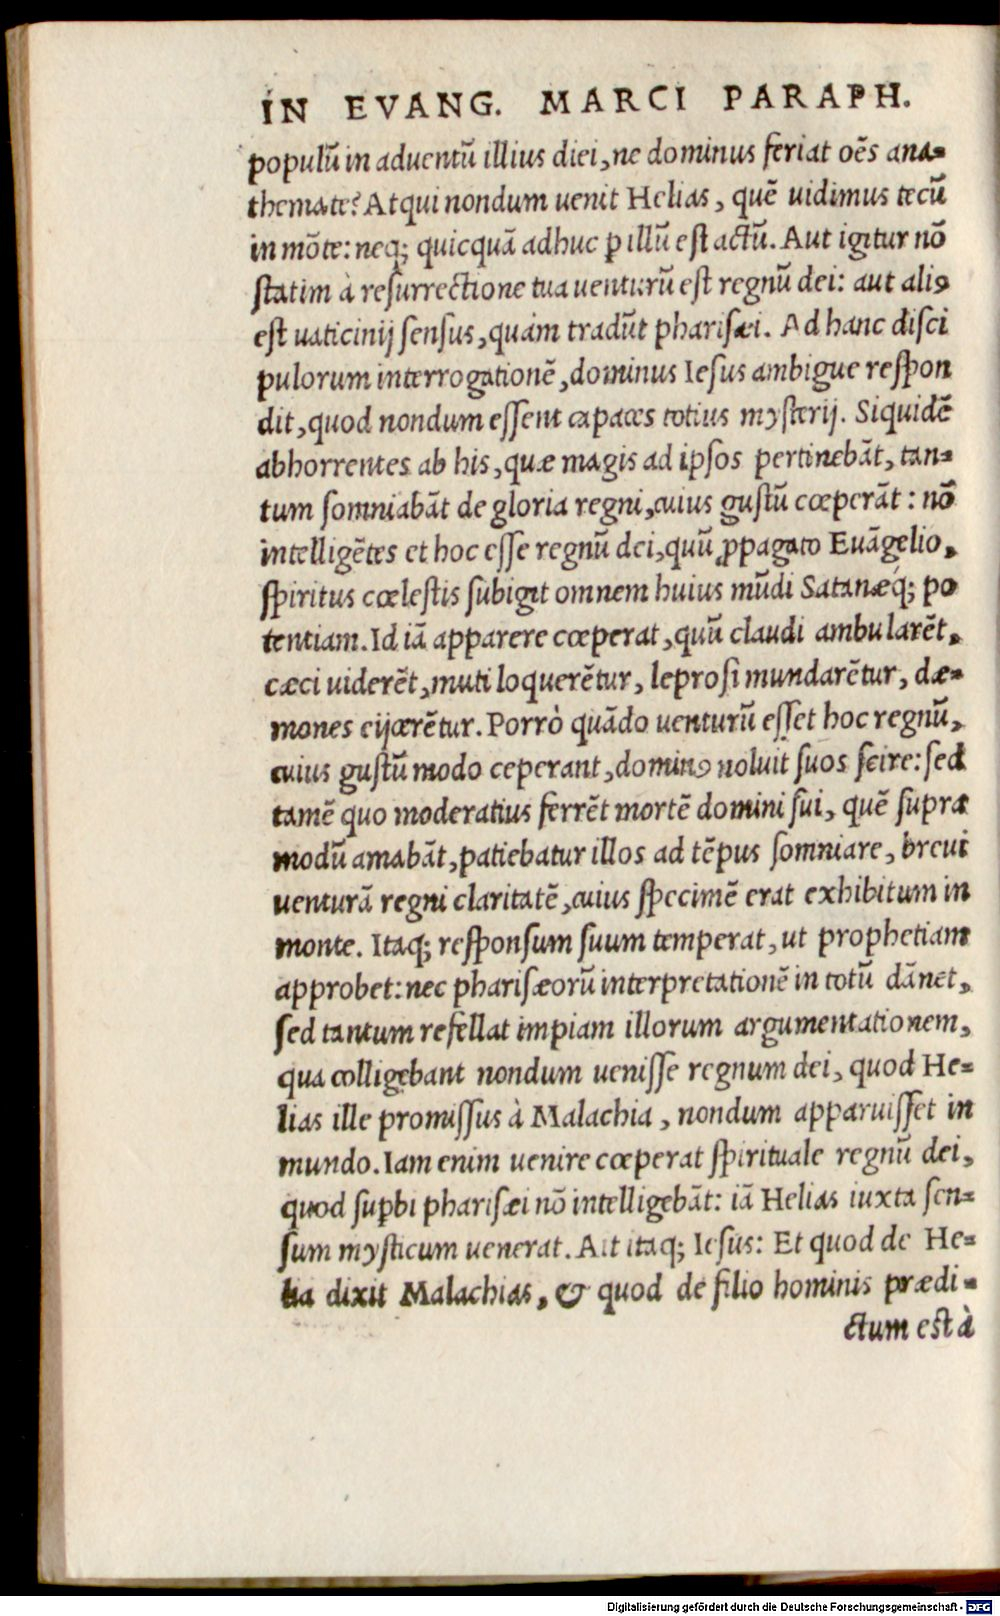 IN EVANG. MARCI PARAPH.
populũ in aduentũ illius diei, ne dominus feriat oẽs ana-
themate? Atqui nondum uenit Helias, quẽ uidimus tecũ
in mõte: neq; quicquã adhuc ꝑ illũ est actũ. Aut igitur nõ
statim à resurrectione tua uenturũ est regnũ dei: aut aliꝰ
est uaticinij sensus, quàm tradũt pharisæi. Ad hanc disci
pulorum interrogationẽ, dominus Iesus ambigue respon
dit, quod nondum essent capaces totius mysterij. Siquidẽ
abhorrentes ab his, quæ magis ad ipsos pertinebãt, tan-
tum somniabãt de gloria regni, cuius gustũ cœperãt: nõ
intelligẽtes et hoc esse regnũ dei, quũ ꝓpagato Euãgelio,
spiritus cœlestis subigit omnem huius mũdi Satanæq́; po
tentiam. Id iã apparere cœperat, quũ claudi ambularẽt,
cæci uiderẽt, muti loquerẽtur, leprosi mundarẽtur, dæ-
mones eijcerẽtur. Porrò quãdo uenturũ esset hoc regnũ,
cuius gustũ modo ceperant, dominꝰ noluit suos scire: sed
tamẽ quo moderatius ferrẽt mortẽ domini sui, quẽ supra
modũ amabãt, patiebatur illos ad tẽpus somniare, breui
venturã regni claritatẽ, cuius specimẽ erat exhibitum in
monte. Itaq; responsum suum temperat, ut prophetiam
approbet: nec pharisæorũ interpretationẽ in totũ dãnet,
sed tantum refellat impiam illorum argumentationem,
qua colligebant nondum uenisse regnum dei, quod He-
lias ille promissus à Malachia, nondum apparuisset in
mundo. Iam enim uenire cœperat spirituale regnũ dei,
quod suꝑbi pharisæi nõ intelligebãt: iã Helias iuxta sen-
sum mysticum uenerat. Ait itaq; Iesus: Et quod de He-
lia dixit Malachias, & quod de filio hominis prædi-
ctum est à
Digitalisierung gefördert durch die Deutsche Forschungsgemeinschaft - DFG